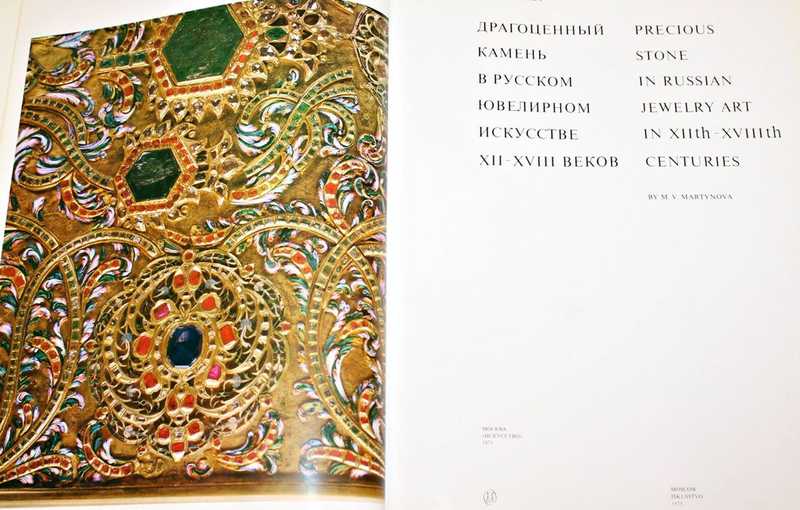 ДРАГОЦЕННЫЙ
КАМЕНЬ
В РУССКОМ
ЮВЕЛИРНОМ
ИСКУССТВЕ
XII-XVIII ВЕКОВ
PRECIOUS
STONE
IN RUSSIAN
JEWELRY ART
IN XIIth-XVIIIth
CENTURIES
BY M. V. MARTYNOVA
МОСКВА
«ИСКУССТВО»
MOSCOW
ISKUSSTVO